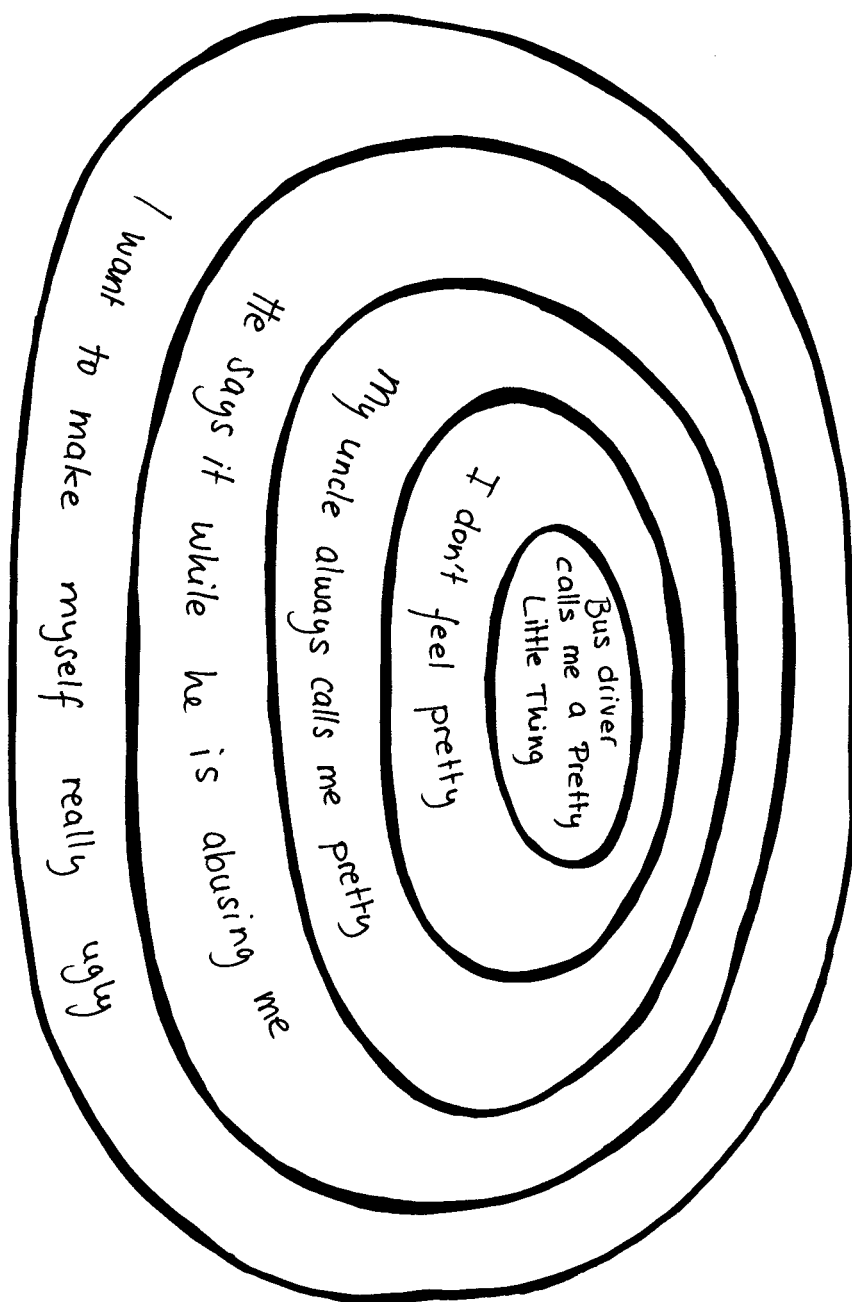 Bus driver
calls me a Pretty
Little Thing
I don't feel pretty
My uncle always calls me pretty
He says it while he is abusing me
I want to make myself really ugly